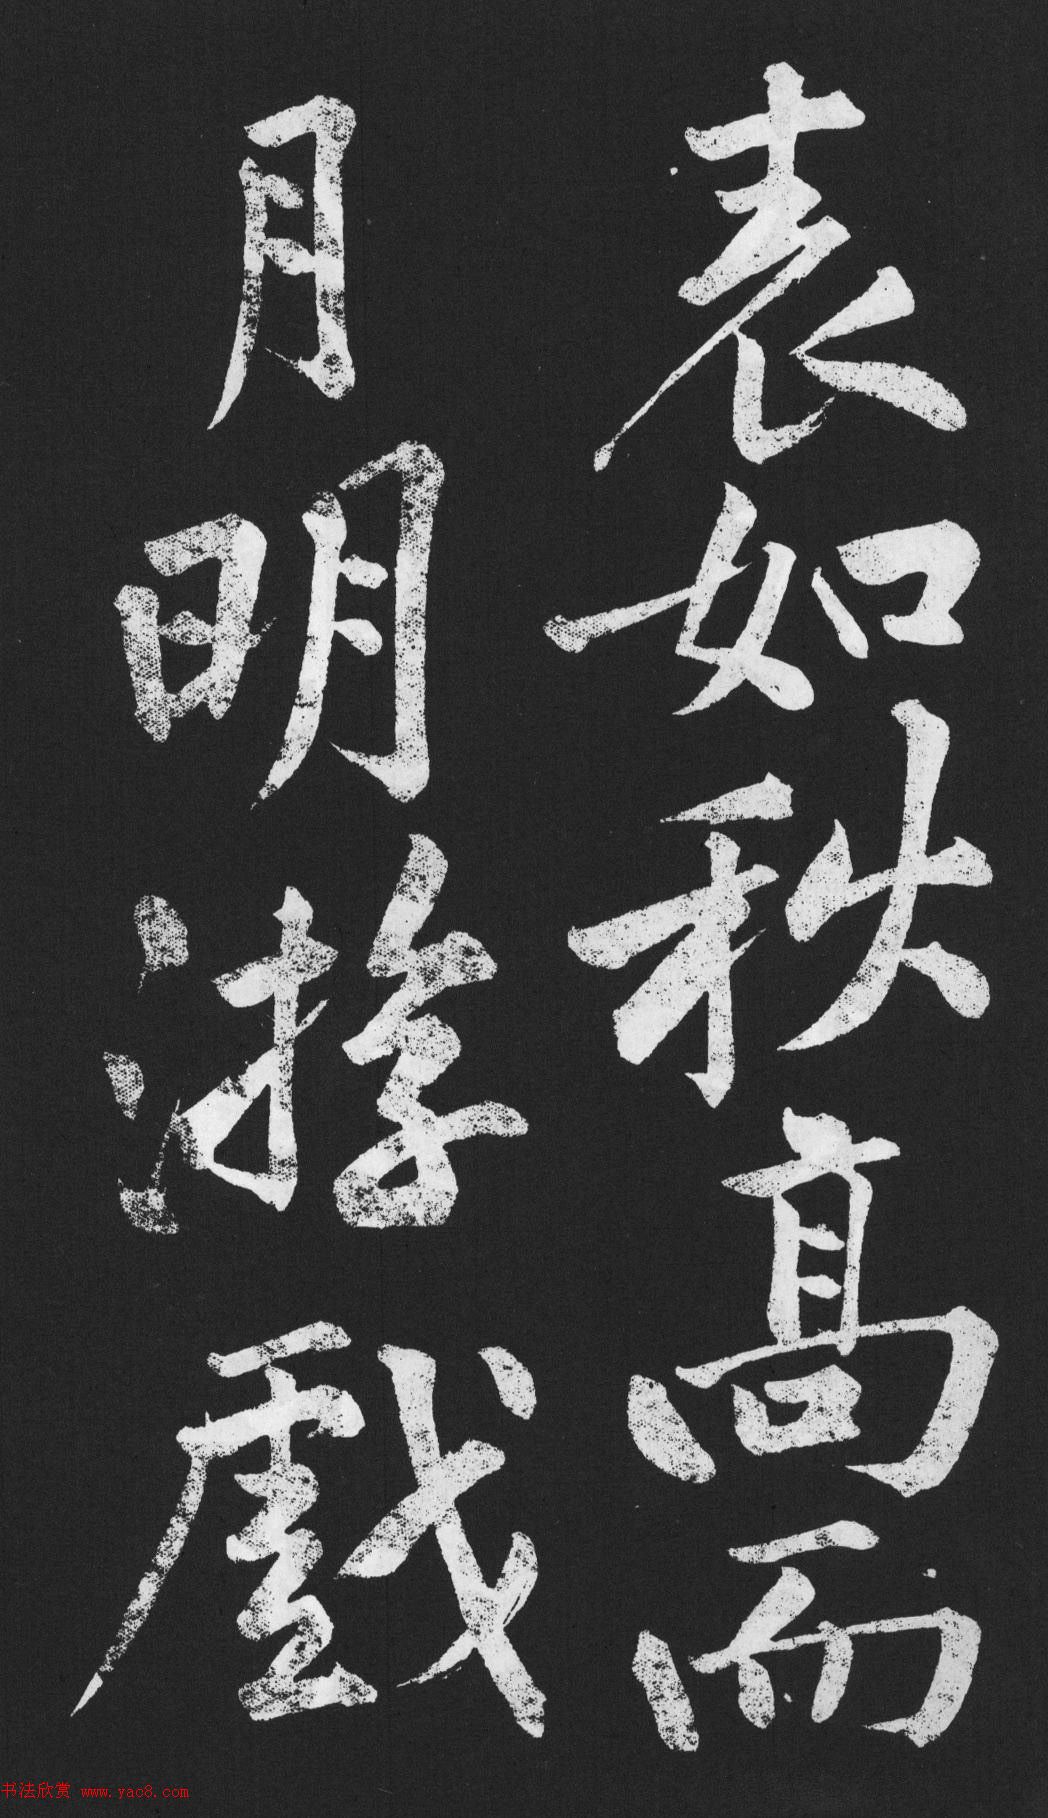 表如秋高而
月明游戲
书法欣赏 www.yac8.com